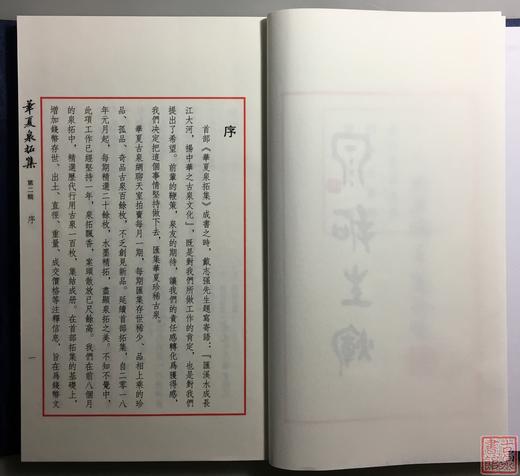 序
首部《華夏泉拓集》成書之時，戴志强先生題寫寄語：「匯溪水成長
江大河，揚中華之古泉文化」，既是對我們所做工作的肯定，也是對我們
提出了希望。前輩的鞭策，泉友的期待，讓我們的責任感轉化為獲得感，
我們决定把這個事情堅持做下去，匯集華夏珍稀古泉。
華夏古泉網聊天室拍賣每月一期，每期匯集存世稀少、品相上乘的珍
品、孤品、奇品古泉百餘枚，不乏創見新品。延續首部拓集，自二零一八
年元月起，每期精選二十餘枚，水墨精拓，盡顯泉拓之美。不知不覺中，
此項工作已經堅持一年，泉拓飄香，案頭散放已尺餘高。我們在前八個月
的泉拓中，精選歷代行用古泉一百枚，集結成册。在首部拓集的基礎上，
增加錢幣存世、出土、直徑、重量、成交價格等注釋信息，旨在為錢幣文
華夏泉拓集 第二輯 序
一
泉拓生輝